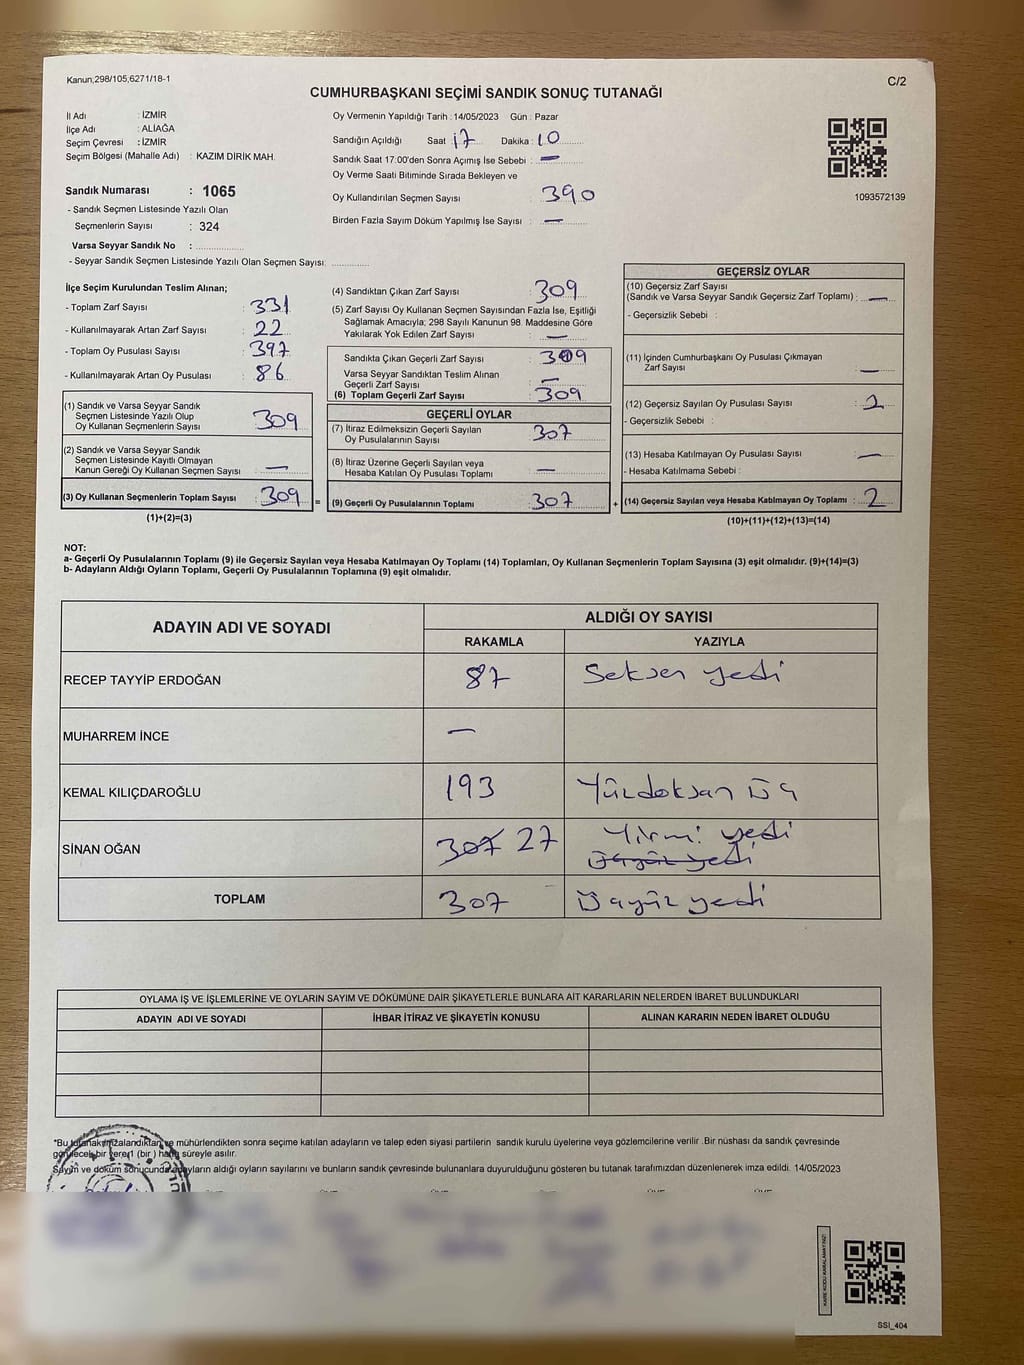 Kanun;298/105;6271/18-1
C/2
CUMHURBAŞKANI SEÇİMİ SANDIK SONUÇ TUTANAĞI
İl Adı : İZMİR
İlçe Adı : ALİAĞA
Seçim Çevresi : İZMİR
Seçim Bölgesi (Mahalle Adı) : KAZIM DİRİK MAH.
Sandık Numarası : 1065
- Sandık Seçmen Listesinde Yazılı Olan
Seçmenlerin Sayısı : 324
Varsa Seyyar Sandık No :
- Seyyar Sandık Seçmen Listesinde Yazılı Olan Seçmen Sayısı:
Oy Vermenin Yapıldığı Tarih : 14/05/2023 Gün : Pazar
Sandığın Açıldığı Saat : 17 Dakika : 10
Sandık Saat 17:00'den Sonra Açımış İse Sebebi : —
Oy Verme Saati Bitiminde Sırada Bekleyen ve
Oy Kullandırılan Seçmen Sayısı : 390
Birden Fazla Sayım Döküm Yapılmış İse Sayısı : —
1093572139
İlçe Seçim Kurulundan Teslim Alınan;
- Toplam Zarf Sayısı : 331
- Kullanılmayarak Artan Zarf Sayısı : 22
- Toplam Oy Pusulası Sayısı : 397
- Kullanılmayarak Artan Oy Pusulası : 86
(1) Sandık ve Varsa Seyyar Sandık
Seçmen Listesinde Yazılı Olup
Oy Kullanan Seçmenlerin Sayısı : 309
(2) Sandık ve Varsa Seyyar Sandık
Seçmen Listesinde Kayıtlı Olmayan
Kanun Gereği Oy Kullanan Seçmen Sayısı : —
(3) Oy Kullanan Seçmenlerin Toplam Sayısı : 309 =
(1)+(2)=(3)
(4) Sandıktan Çıkan Zarf Sayısı : 309
(5) Zarf Sayısı Oy Kullanan Seçmen Sayısından Fazla İse, Eşitliği
Sağlamak Amacıyla; 298 Sayılı Kanunun 98. Maddesine Göre
Yakılarak Yok Edilen Zarf Sayısı : —
Sandıkta Çıkan Geçerli Zarf Sayısı : 309
Varsa Seyyar Sandıktan Teslim Alınan
Geçerli Zarf Sayısı : —
(6) Toplam Geçerli Zarf Sayısı : 309
GEÇERLİ OYLAR
(7) İtiraz Edilmeksizin Geçerli Sayılan
Oy Pusulalarının Sayısı : 307
(8) İtiraz Üzerine Geçerli Sayılan veya
Hesaba Katılan Oy Pusulası Toplamı : —
(9) Geçerli Oy Pusulalarının Toplamı : 307 +
GEÇERSİZ OYLAR
(10) Geçersiz Zarf Sayısı
(Sandık ve Varsa Seyyar Sandık Geçersiz Zarf Toplamı) : —
- Geçersizlik Sebebi :
(11) İçinden Cumhurbaşkanı Oy Pusulası Çıkmayan
Zarf Sayısı : —
(12) Geçersiz Sayılan Oy Pusulası Sayısı : 2
- Geçersizlik Sebebi :
(13) Hesaba Katılmayan Oy Pusulası Sayısı : —
- Hesaba Katılmama Sebebi :
(14) Geçersiz Sayılan veya Hesaba Katılmayan Oy Toplamı : 2
(10)+(11)+(12)+(13)=(14)
NOT:
a- Geçerli Oy Pusulalarının Toplamı (9) ile Geçersiz Sayılan veya Hesaba Katılmayan Oy Toplamı (14) Toplamları, Oy Kullanan Seçmenlerin Toplam Sayısına (3) eşit olmalıdır. (9)+(14)=(3)
b- Adayların Aldığı Oyların Toplamı, Geçerli Oy Pusulalarının Toplamına (9) eşit olmalıdır.
ADAYIN ADI VE SOYADI
ALDIĞI OY SAYISI
RAKAMLA YAZIYLA
RECEP TAYYİP ERDOĞAN 87 Seksen yedi
MUHARREM İNCE —
KEMAL KILIÇDAROĞLU 193 Yüzdoksan üç
SİNAN OĞAN 307 27 Yirmi yedi
Üçyüz yedi
TOPLAM 307 Üçyüz yedi
OYLAMA İŞ VE İŞLEMLERİNE VE OYLARIN SAYIM VE DÖKÜMÜNE DAİR ŞİKAYETLERLE BUNLARA AİT KARARLARIN NELERDEN İBARET BULUNDUKLARI
ADAYIN ADI VE SOYADI İHBAR İTİRAZ VE ŞİKAYETİN KONUSU ALINAN KARARIN NEDEN İBARET OLDUĞU
*Bu tutanak imzalandıktan ve mühürlendikten sonra seçime katılan adayların ve talep eden siyasi partilerin sandık kurulu üyelerine veya gözlemcilerine verilir .Bir nüshası da sandık çevresinde
görülecek bir yere1 (bir ) hafta süreyle asılır.
Sayım ve döküm sonucunda adayların aldığı oyların sayılarını ve bunların sandık çevresinde bulunanlara duyurulduğunu gösteren bu tutanak tarafımızdan düzenlenerek imza edildi. 14/05/2023
KARE KODU KARALAMAYINIZ!
SSI_404